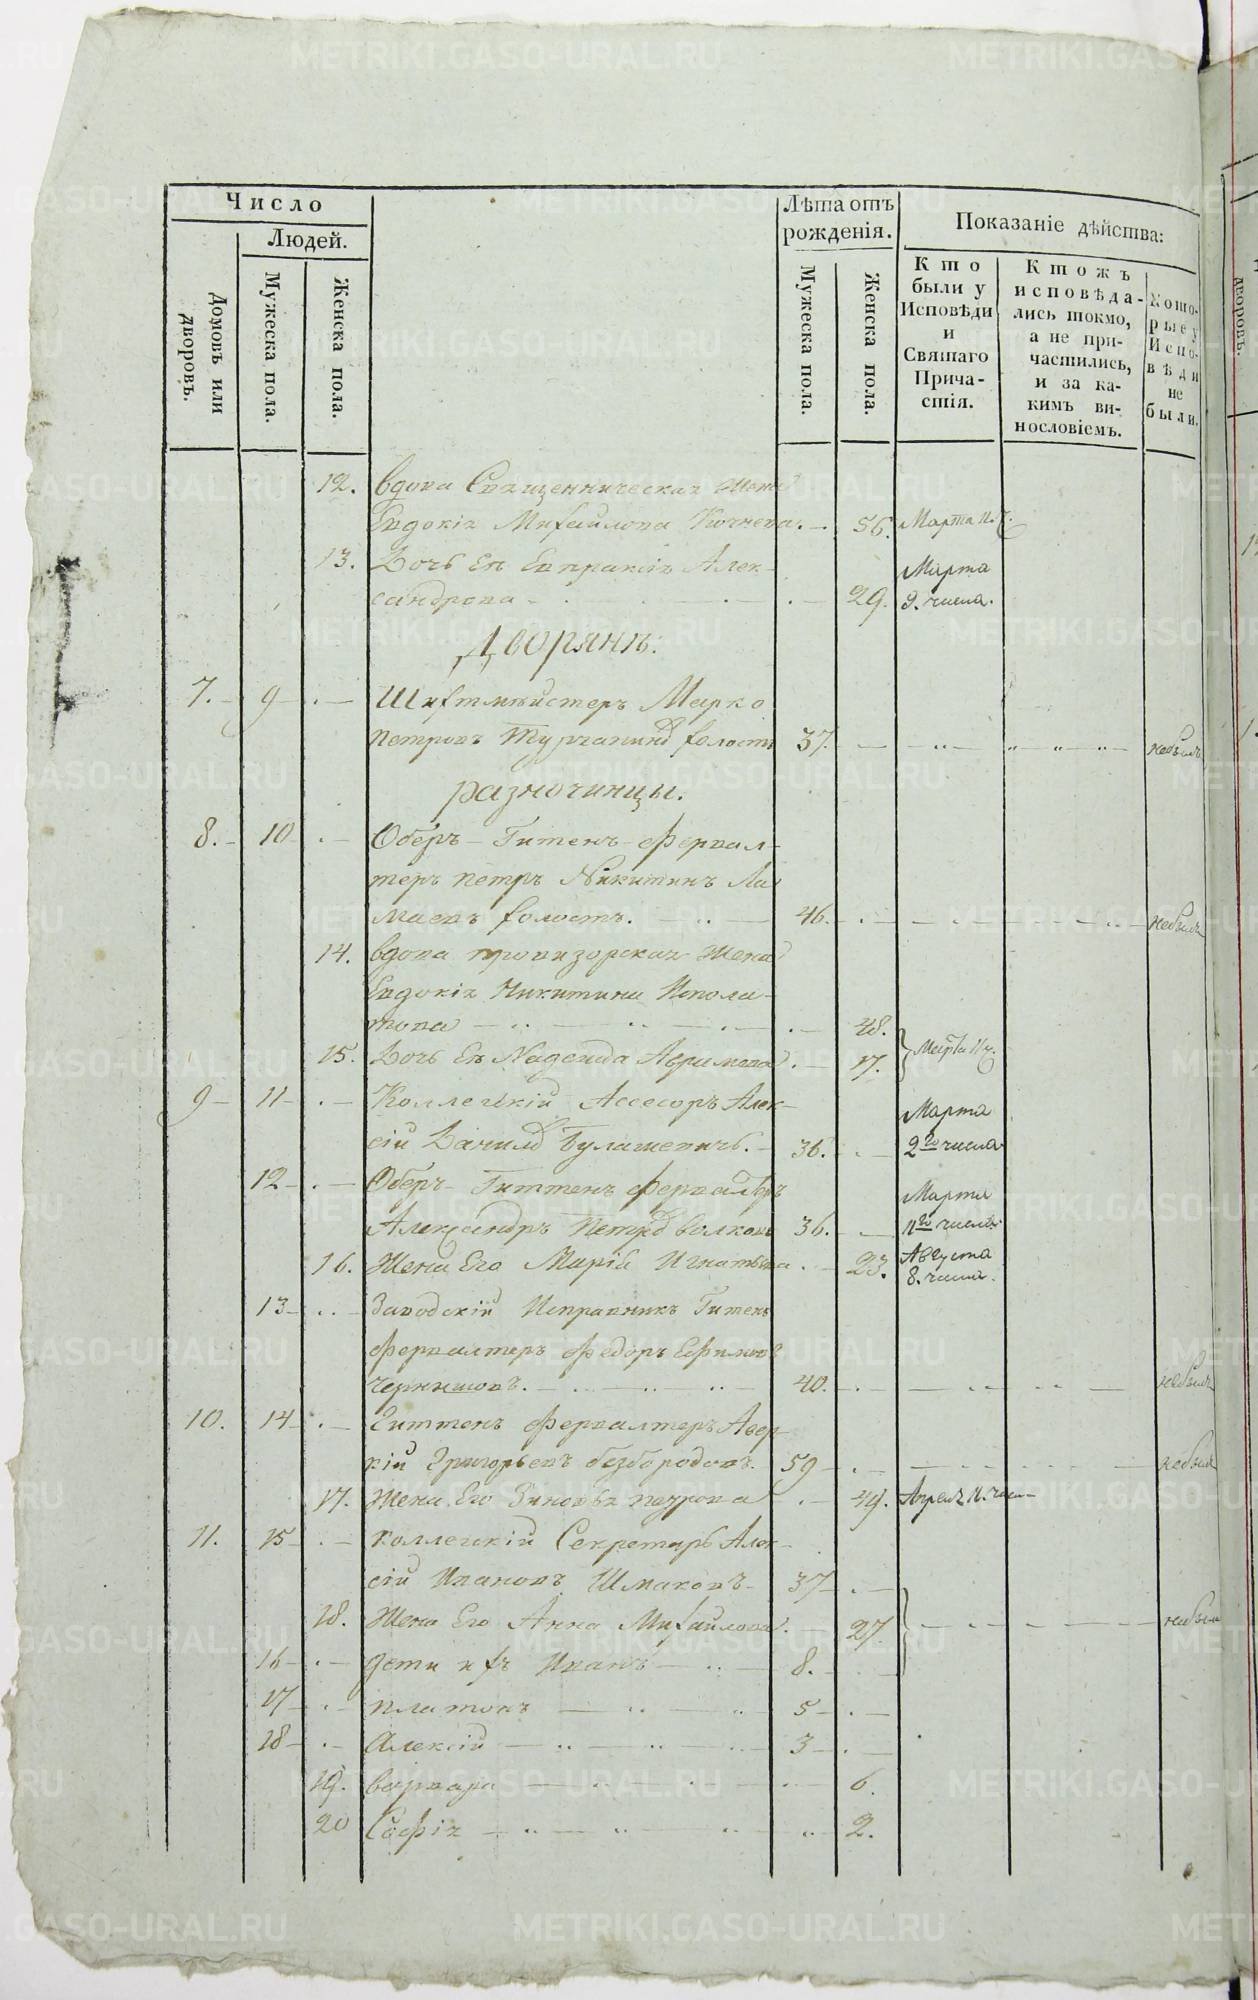 Число
Людей.
Домовъ или дворовъ.
Мужеска пола.
Женска пола.
Лѣта отъ рожденія.
Мужеска пола.
Женска пола.
Показаніе дѣйства:
Кто были у Исповѣди и Святаго Причастія.
Ктожъ исповѣдались токмо, а не причастились, и за какимъ винословіемъ.
Которые у Исповѣди не были.
12. вдова Священническая Жена
Евдокія Михайлова . — 56. Марта 11. ч.
13. Дочь Ея Евпраксія Алек-
сандрова — . — . — 29. Марта 9. числа.
Дворянѣ:
7. — 9 — . — Шихтмѣйстеръ Марко
Петровъ Турчанинъ холостъ 37. — небылъ
разночинцы.
8. — 10 . — Оберъ — Гитенъ — фервал-
теръ петръ Никитинъ Ла
маевъ холостъ. — 46. — . — небылъ
14. вдова провизорская Жена
Евдокія Никитина Ипола-
това — . — 48.
15. Дочь Ея Надежда Абрамова . — 17. Марта 11 ч.
9 — 11 — . — Коллегскій Ассесоръ Алек-
сій Данилъ Булашевичъ. — 36. . — Марта 2го числа
12 — . — Оберъ — Гиттенъ фервалтеръ
Александръ Петръ волковъ 36. . — Марта 11го числа
16. Жена Его Марія Игнатьева . — 23. Августа 8. числа.
13 — . . — Заводскій Исправникъ Гитенъ
фервалтеръ Федоръ Ефимовъ
Чернышовъ. — 40. — . — небылъ
10. 14 — . — Гиттенъ фервалтеръ Авер-
кій Григорьевъ безбородовъ. 59 — . — небылъ
17. Жена Его Зиновья . — 49. Апреля 11. чис—
11. 15 — . — коллегскій Секретарь Алек-
сій Ивановъ Шмаковъ — 37 — . —
18. Жена Его Анна Михайлова . — 27 — небыли
16 — . — дети ихъ Иванъ — 8. — . —
17 — . — платонъ — 5 — . —
18 — . — Алексій — 3 — . —
19. варвара — 6.
20 Софія — 2.
дворовъ.
METRIKI.GASO-URAL.RU